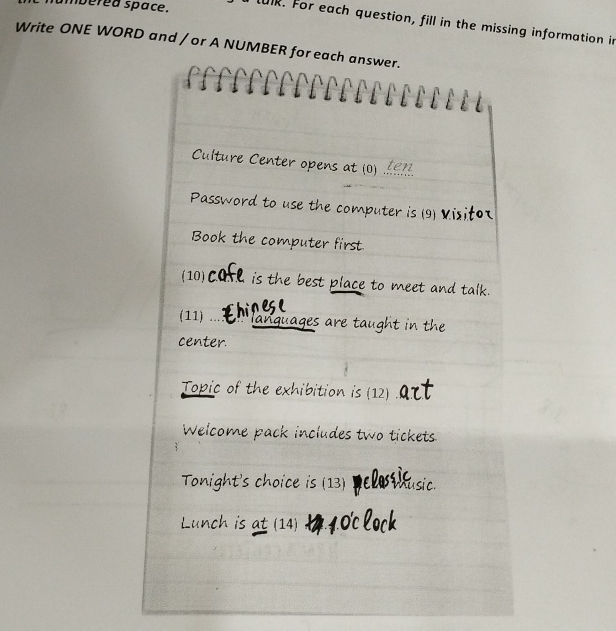 numbered space.
talk. For each question, fill in the missing information in
Write ONE WORD and / or A NUMBER for each answer.
Culture Center opens at (0) ten
Password to use the computer is (9) visitor
Book the computer first.
(10) cafe is the best place to meet and talk.
(11) .... Chinese languages are taught in the
center.
Topic of the exhibition is (12) .art
Welcome pack includes two tickets.
Tonight's choice is (13) classic music.
Lunch is at (14) 1 o'clock